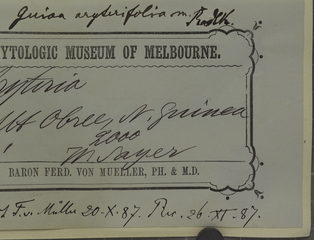 Guioa aryterifolia m. Radlk.
YTOLOGIC MUSEUM OF MELBOURNE.
ryteria
Mt Obree, N. Guinea
2000
W Sayer
BARON FERD. VON MUELLER, PH. & M.D.
F. v. Müller 20-X. 87. Rec. 26-XI-87.